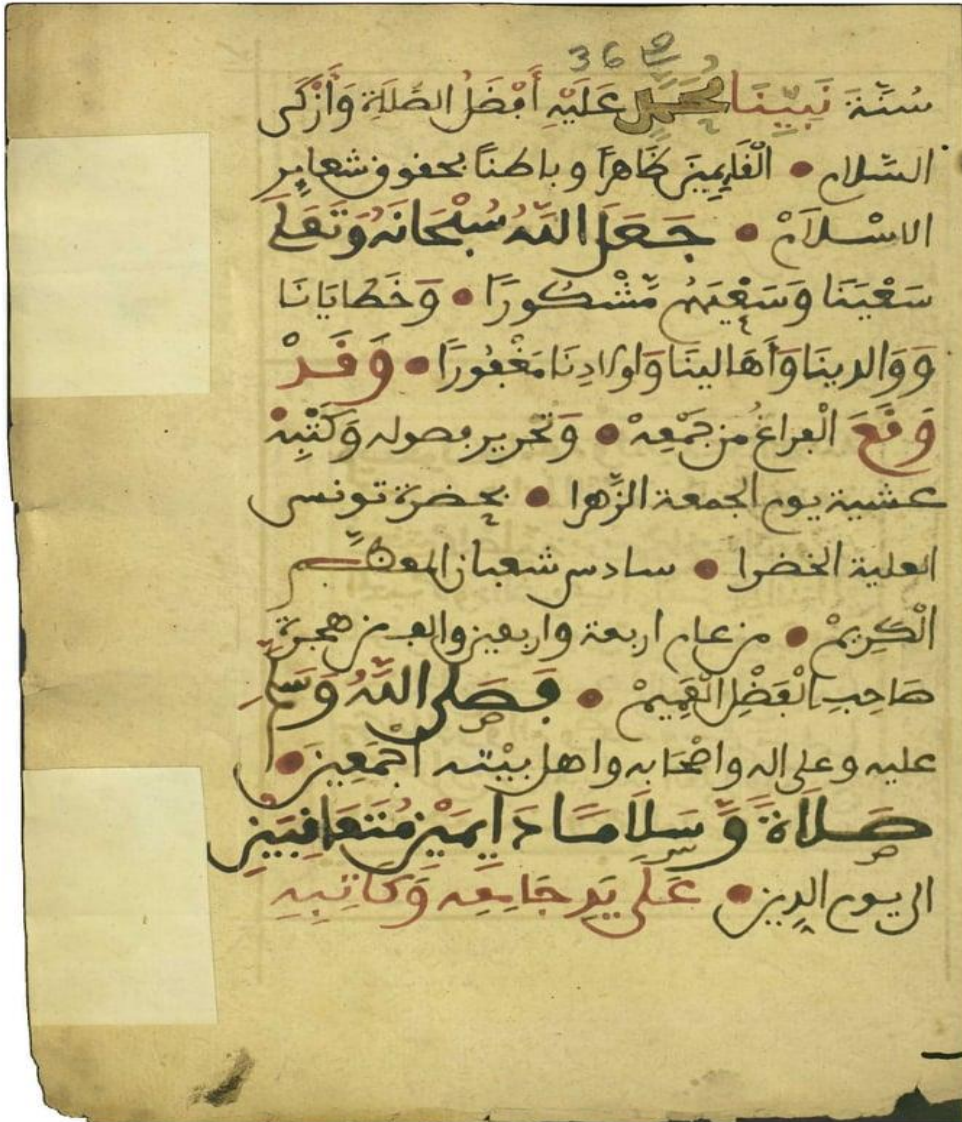 365
سُنَّةَ نَبِيِّنَا مُحَمَّدٍ عَلَيْهِ أَفْضَلُ الصَّلَاةِ وَأَزْكَى
السَّلَام • الْقَايِمِينَ ظَاهِرًا وباطنًا بحقوق شعاير
الاسْلَامْ • جَعَلَ اللَّهُ سُبْحَانَهُ وَتَعَلَى
سَعْيَنَا وَسَعْيَهُمْ مَّشْكُورًا • وَخَطَايَانَا
وَوَالدينَا وَأَهَالينَا وَاولادِنَا مَغْفُورًا • وَقَدْ
وَقَعَ الْفراغُ من جَمْعِهْ • وَتحرير فصوله وَكَتْبِهْ
عشية يوم الجمعة الزَّهرا • بحضرة تونس
العلية الخضرا • سادس شعبان المعظّم
الْكَرِيمْ • من عام اربعة واربعين والف من هجرة
صَاحِبِ الْفَضْلِ الْعَمِيمْ • فَصَلَّى اللَّهُ وَسَلَّمَ
عليه وعلى اله واصْحَابه واهل بيْته اجْمَعِينَ •
صَلَاةً وَّسَلَامًا دَايِمَيْنِ مُتَعَاقِبَيْنِ
الى يوم الدين • عَلَى يَدِ جَامِعِه وَكَاتِبِهِ